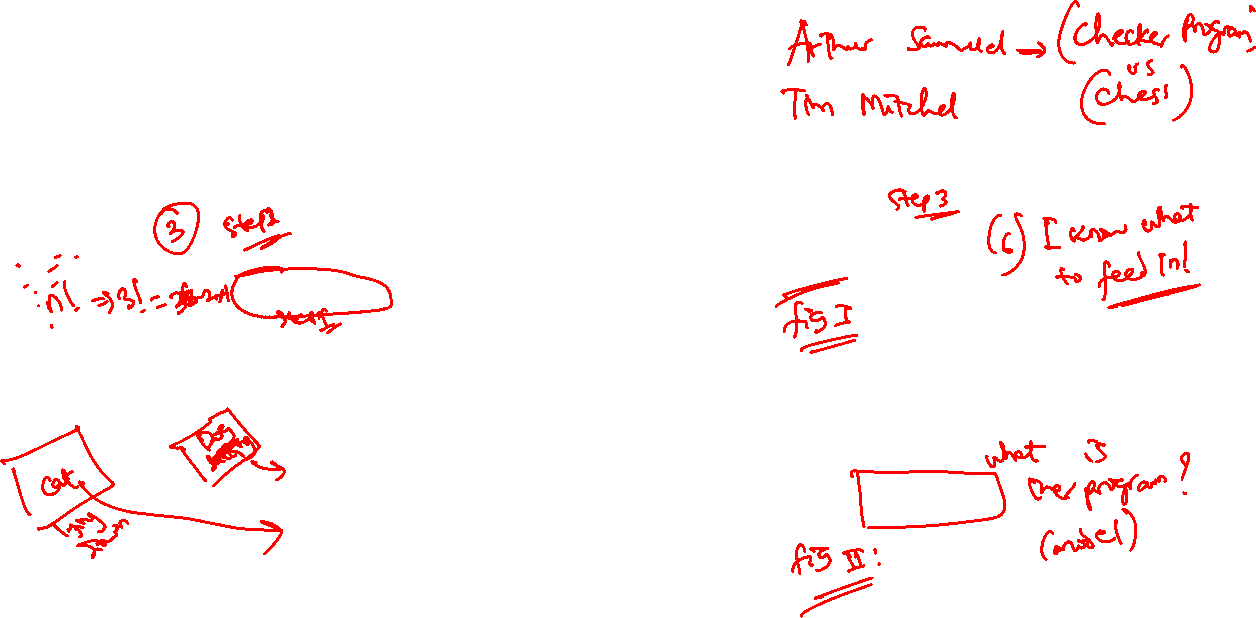 Arthur Samuel → (Checker Program
vs
(Chess)
Tim Mitchel
③ Step2
n! ⇒ 3! =
Step 3
(6) I know what
to feed in!
fig I
Cat
Dog
what is
program?
(model)
fig II: